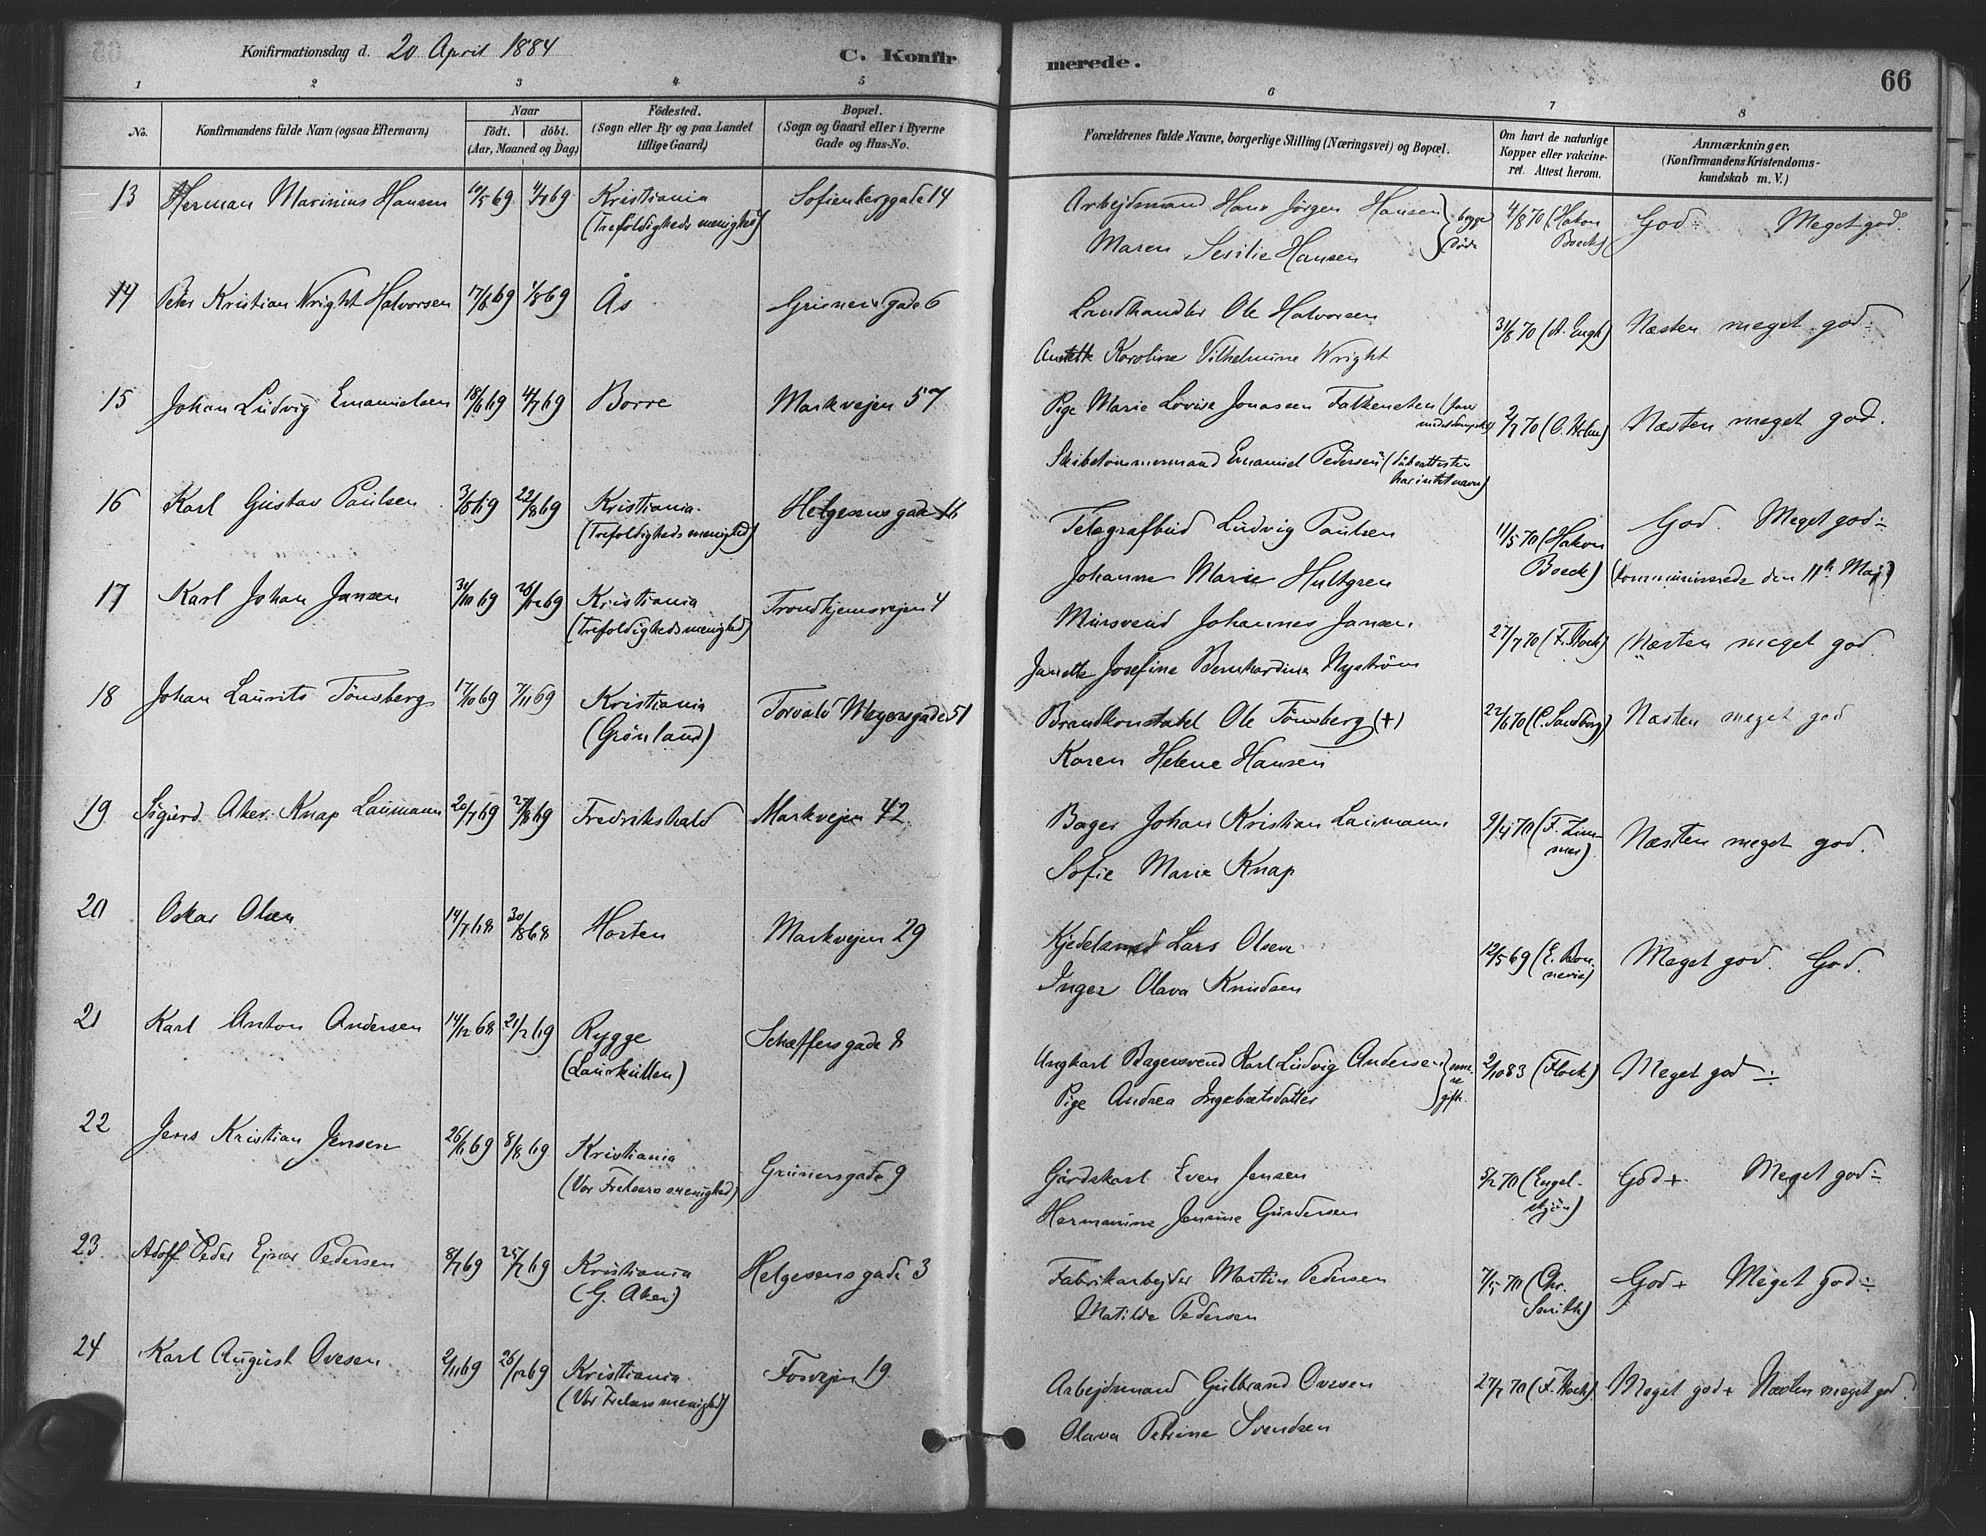 Konfirmationsdag d. 20 April 1884
C. Konfirmerede.
66
1 2 3 4 5 6 7 8
No.
Konfirmandens fulde Navn (ogsaa Efternavn)
Naar
födt. döbt.
(Aar, Maaned og Dag)
Födested.
(Sogn eller By og paa Landet
tillige Gaard)
Bopæl.
(Sogn og Gaard eller i Byerne
Gade og Hus-No.
Forældrenes fulde Navne, borgerlige Stilling (Næringsvei) og Bopæl.
Om havt de naturlige
Kopper eller vakcine-
ret. Attest herom.
Anmærkninger.
(Konfirmandens Kristendoms-
kundskab m. V.)
13 Herman Marinius Hansen 10/5 69 4/7 69 Kristiania Sofienberggade 14 Arbejdsmand Hans Jörgen Hansen } begge 4/8 70 (Hakon God ÷ Meget god.
(Trefoldigheds menighed) Maren Sesilie Hansen döde Boeck)
14 Peter Kristian Wright Halvorsen 17/6 69 1/8 69 Ås Grünersgade 6 Landhandler Ole Halvorsen 31/8 70 (A. Engh) Næsten meget god ÷
Anette Karoline Vilhelmine Wright
15 Johan Ludvig Emanuelsen 18/6 69 4/7 69 Borre Markvejen 57 Pige Marie Lovise Jonassen Falkensten 2/7 70 (O. Holm) Næsten meget god.
Skibstømmermand Emanuel Pedersen (döbeattesten
har intet navn)
16 Karl Gustav Paulsen 22/8 69 Kristiania. Helgesensgade 16 Telegrafbud Ludvig Paulsen 11/5 70 (Hakon God. Meget god ÷
(Trefoldigheds menighed) Johanne Marie Hultgren Boeck) (kommunicerede den 11te Maj)
17 Karl Johan Jansen 31/10 69 26/12 69 Kristiania Trondhjemsvejen 4 Mursvend Johannes Jansen 27/7 70 (F. Hock) Næsten meget god.
(Trefoldigheds menighed) Janette Josefine Bernhardine Nyström
18 Johan Laurits Tönsberg 17/10 69 7/11 69 Kristiania Torvald Meyersgade 51 Brandkonstabel Ole Tönsberg (+) 22/6 70 (C. Sandborg) Næsten meget god
(Grönland) Karen Helene Hansen
19 Sigurd Aker Knap Laumann 20/7 69 27/8 69 Fredrikshald Markvejen 42 Bager Johan Kristian Laumann 9/4 70 Næsten meget god.
Sofie Marie Knap
20 Oskar Olsen 14/7 68 30/8 68 Horten Markvejen 29 Kjedelsmed Lars Olsen 12/5 69 (E. Bon- Meget god. God.
Inger Olava Knudsen nevie)
21 Karl Anton Andersen 14/12 68 21/2 69 Rygge Schæffersgade 8 Ungkarl Bagersvend Karl Ludvig Andersen 2/10 83 (Flock) Meget god ÷
Pige Andrea Ingebretsdatter gift.
22 Jens Kristian Jensen 26/6 69 8/8 69 Kristiania Grünersgade 9 Gårdskarl Even Jensen 5/2 70 (Engel- God + Meget god ÷
(Vor Frelsers menighed) Hermanine Jensine Gundersen
23 Adolf Peder Ejnar Pedersen 8/7 69 25/7 69 Kristiania Helgesensgade 3 Fabrikarbejder Martin Pedersen 7/5 70 (Chr. God + Meget god ÷
(G. Aker) Matilde Pedersen Smith)
24 Karl August Ovesen 2/11 69 26/12 69 Kristiania. Fosvejen 19 Arbejdsmand Gulbrand Ovesen 27/7 70 (F. Hock) Meget god + Næsten meget god.
(Vor Frelsers menighed) Olava Petrine Svendsen